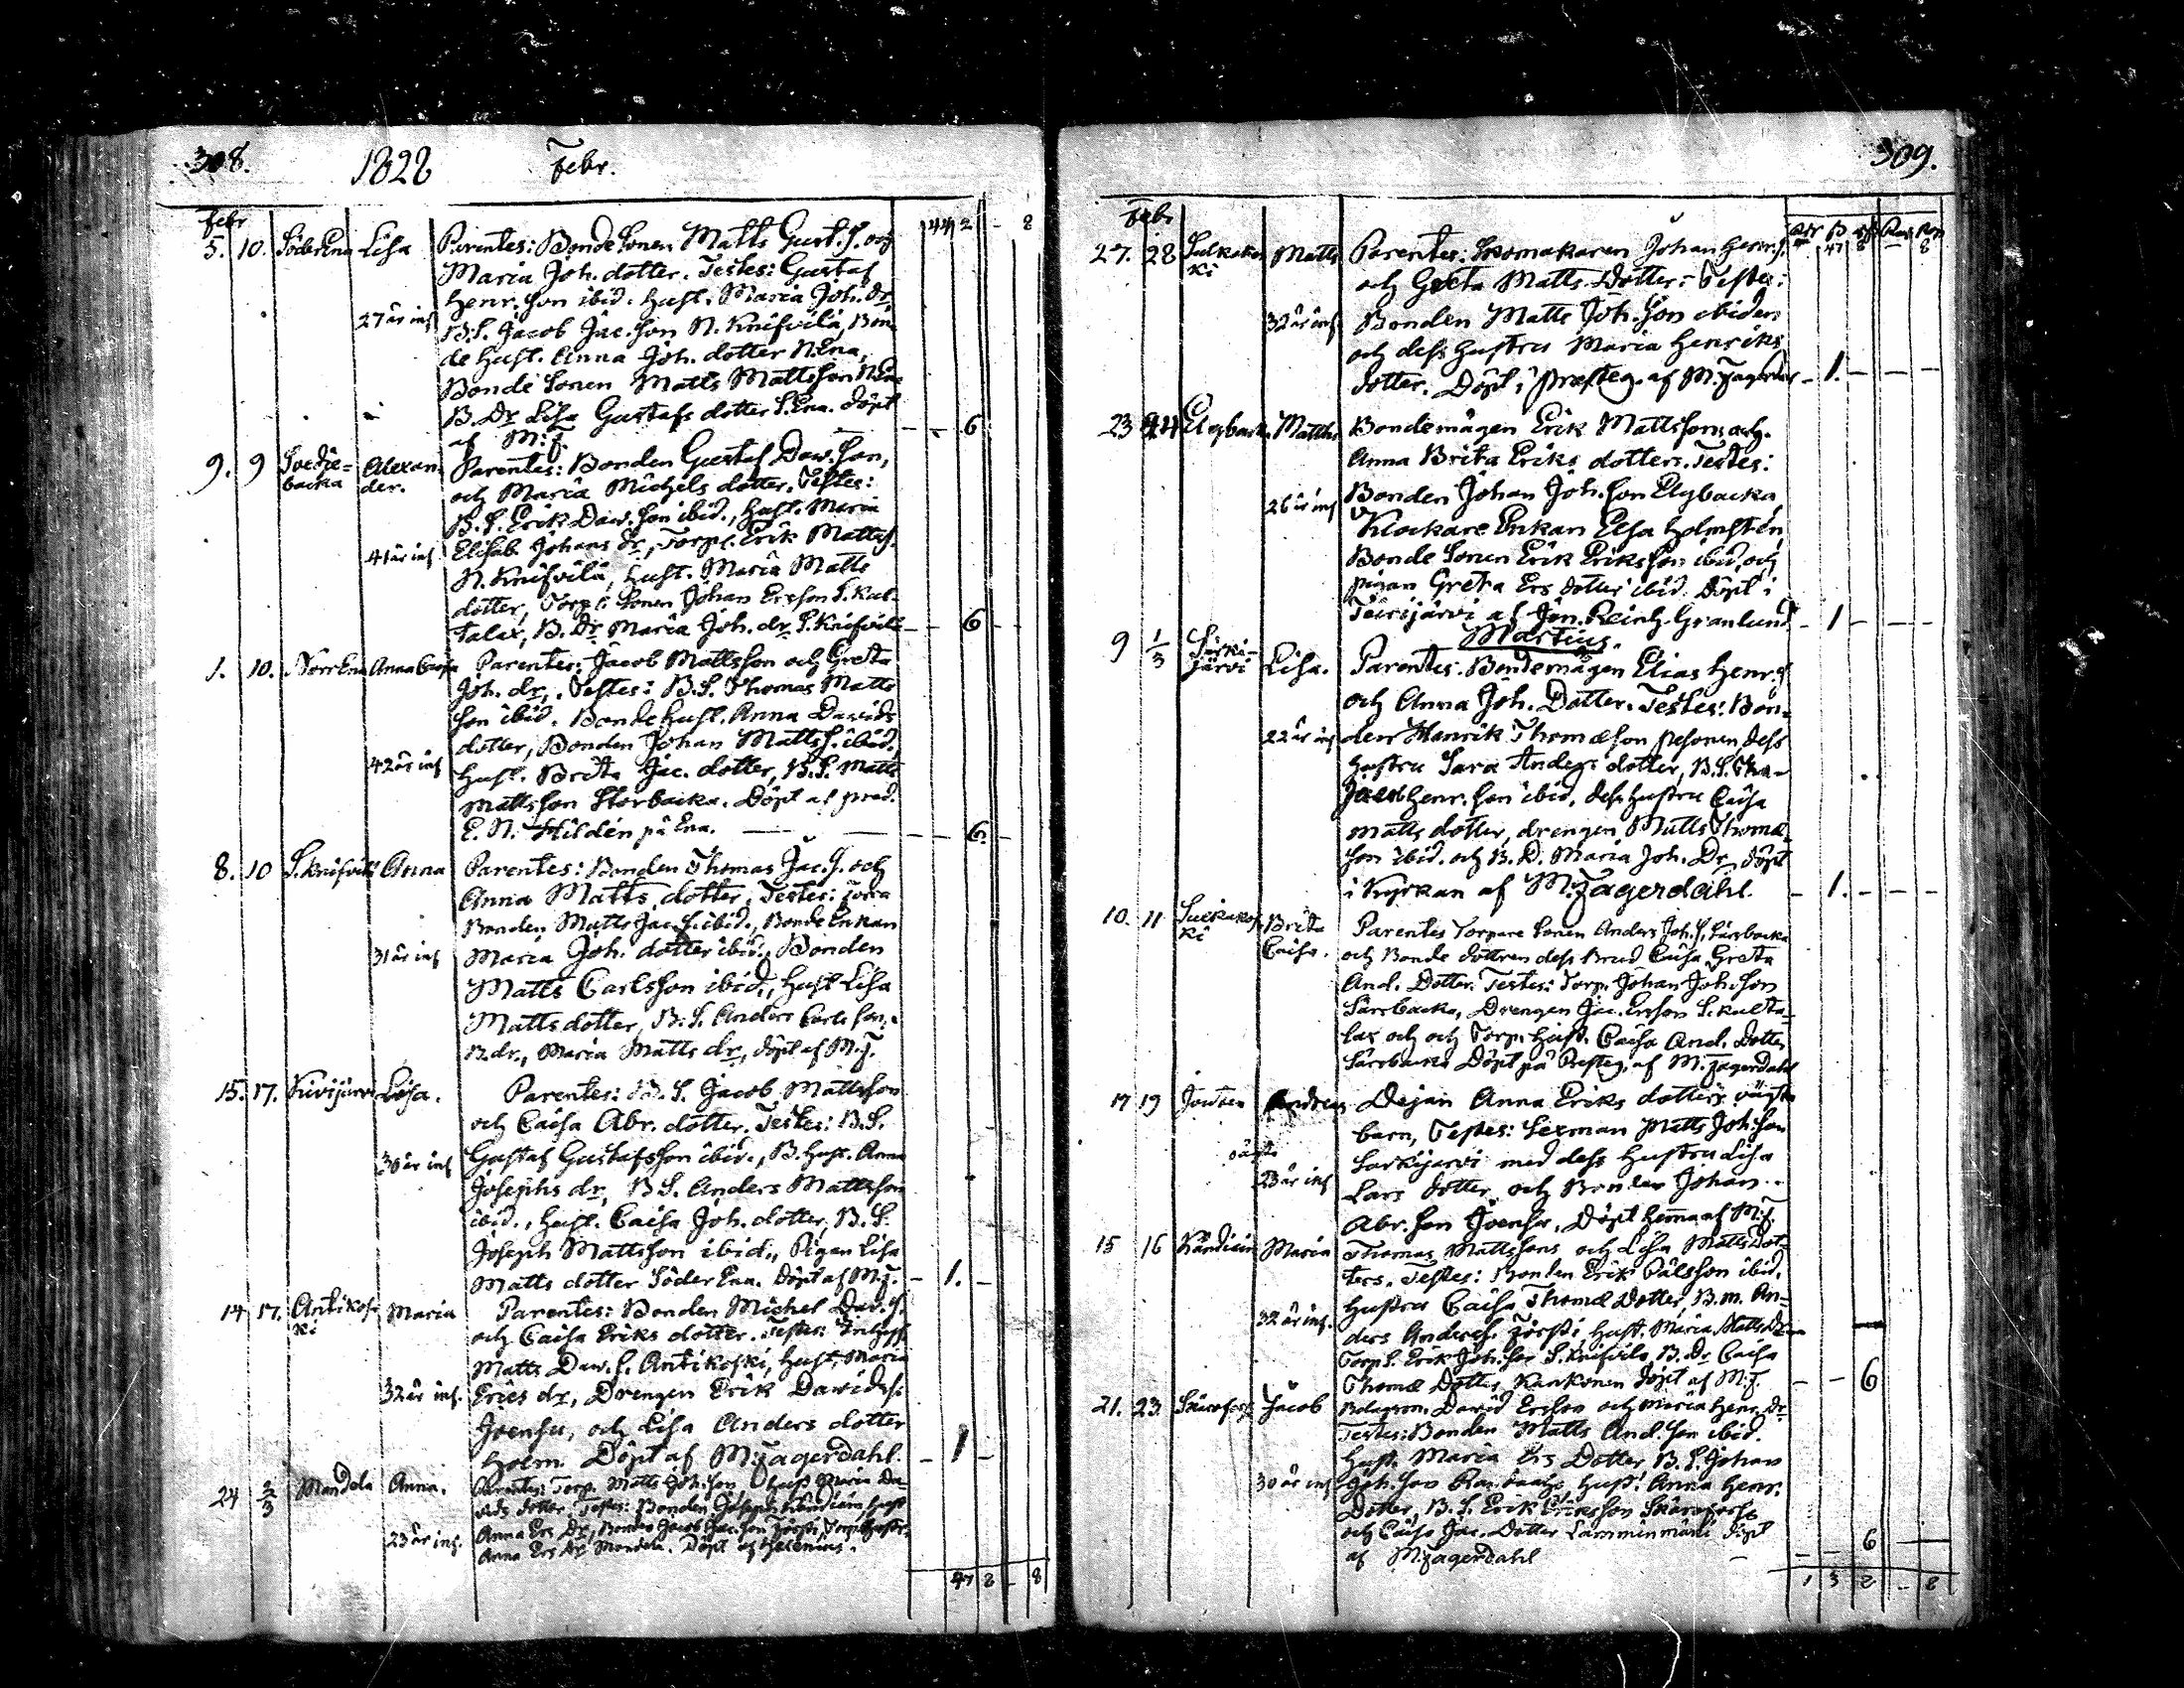 308. 1828 Febr.
Febr 44 2 - 8
5. 10. Söder Ena Lisa Parentes: Bonde Sonen Matts Gust. S. och
Maria Joh. dotter. Testes: Gustaf
Henr. Son ibid. Hust. Maria Joh. dr
27 år inf B.S. Jacob Jac. Son N. Knifvilä, Bon-
de Hust. Anna Joh. dotter N. Ena,
Bonde Sonen Matts Mattsson N. Ena
B. Dr Lisa Gustafs dotter S. Ena. döpt
af M. J. - - 6
9. 9 Svedje- Alexan- Parentes: Bonden Gustaf Daw. Son,
backa der. och Maria Michels dotter. Testes:
B. S. Erik Daw. Son ibid., Hust. Maria
41 år inf Elisab. Johans dr, Torp. Erik Mattss.
N. Knifvilä, Hust. Maria Matts
dotter, Torp. Sonen Johan Ersson S. Kul-
talax, B. Dr Maria Joh. dr S. Knifvilä - - 6 - -
1. 10. Norr Ena Anna Caisa Parentes: Jacob Mattsson och Greta
Joh. dr. Testes: B. S. Thomas Matts
Son ibid. Bonde Hust. Anna Davids
dotter, Bonden Johan Matts S. ibid.
42 år inf Hust. Brita Jac. dotter, B. S. Matts
Mattsson Storbacka. Döpt af pred.
E. N. Hildén på Ena. - - 6 -
8. 10 S. Knifvilä Anna Parentes: Bonden Thomas Jac. S. och
Anna Matts dotter. Testes:
Bonden Matts Jac. S. ibid., Bonde Enkan
31 år inf Maria Joh. dotter ibid., Bonden
Matts Carlsson ibid., Hust Lisa
Matts dotter, B. S. Anders Carls Son,
B. dr., Maria Matts dr, döpt af M. J.
15. 17. Kivijärvi Lisa. Parentes: B. S. Jacob Mattsson
och Caisa Abr. dotter. Testes: B. S.
30 år inf Gustaf Gustafsson ibid., B. Hust. Anna
Josephs dr, B S. Anders Mattsson
ibid., Hust. Caisa Joh. dotter, B. S.
Joseph Mattsson ibid., Pigan Lisa
Matts dotter Söder Ena. Döpt af M. J. - 1. -
14 17. Antikos- Maria Parentes: Bonden Michel Dav. S.
ki och Caisa Eriks dotter. Testes:
Matts Daw. S. Antikoski, Hust. Maria
32 år inf. Erics dr, Drengen Erik Davids S.
Joensu, och Lisa Anders dotter
Holm. Döpt af M: Jagerdahl. - 1 -
24 2/3 Mandela Anna. Parentes: Torp. Matts Joh. Son, Hust Maria Da-
vids dotter. Testes: Bonden Joseph Kändiein, Hust
23 år inf. Anna Ers Dr, Bonden Jacob Jac. Son Försti, Torp. Hustr.
Anna Ers dr Mandela. Döpt af Helenius.
47 2 - 8
309.
Febr
47 8 - 8
27. 28 Sulkakos- Matts Parentes: Skomakaren Johan Henr. S.
ki och Greta Matts Dotter: Testes:
32 år inf Bonden Matts Joh. Son ibidem
och dess Hustru Maria Henriks
dotter. Döpt i Presteg. af M. Jagerdahl - 1. - - -
23 24 Elgbacka Matths Bondemågen Erik Mattssons och
Anna Brita Eriks dotters. Testes:
26 år inf Bonden Johan Joh. Son Elgbacka
Klockare Enkan Elsa Holmstén,
Bonde Sonen Erik Eriksson ibid, och
pigan Greta Ers dotter ibid. Döpt i
Teirijärvi af Joh. Reinh. Granlund - 1 - -
Martius.
9 1/3 Särki- Lisa. Parentes: Bondemågen Elias Henr. S
järvi och Anna Joh. Dotter. Testes: Bon-
22 år inf den Henrik Thomæson Pesonen, dess
Hustru Sara Anders dotter, B. S.
Jacob Henr. Son ibid, dess Hustru Caisa
Matts dotter, drengen Matts Thomæ
Son ibid. och B. D. Maria Joh. Dr, döpt
i Kyrkan af M: Jagerdahl. - 1. - - -
10. 11 Sulkakos- Brita Parentes Torpare Sonen Anders Joh. S. Särsbacka
ki Caisa. och Bonde dottren dess Brud Caisa Greta
And. Dotter. Testes: Torp. Johan Joh. Son
Särsbacka, Drengen Jac. Ersson S. Kulta-
lax och och Torp. Hust. Caisa And. Dotter
Särsbacka Döpt på Presteg. af M. Jagerdahl
17 19 Joutsen Andreas Dejan Anna Eriks dotters oägta
barn, Testes: Sexman Matts Joh. Son
oägta Särkijärvi med dess Hustru Lisa
23 år inf Lars dotter och Bonden Johan
Abr. Son Joensu. Döpt hemma af M. J.
15 16 Kändiein Maria Thomas Mattssons och Lisa Matts Dot-
ters. Testes: Bonden Erik Pålsson ibid.
32 år inf. Hustru Caisa Thomæ Dotter, B. m. An-
ders Anders S. Försti Hust. Maria Matts Dr
Torp S. Erik Joh. Son S. Knifvilä, B. Dr Caisa
Thomæ Dotter Kankonen döpt af M. J. - - 6
21. 23. Skärsfors Jacob Bolagsm. David Ersson och Maria Henr. Dr
Testes: Bonden Matts And. Son ibid.
Hust. Maria Ers Dotter, B. S. Johan
30 år inf Joh. Son Hust. Anna Henr.
Dotter, B. S. Erik Eriksson Skärsfors
och Caisa Jac. Dotter Lamminmäki döpt
af M: Jagerdahl - - 6 -
1 3 2 - 8